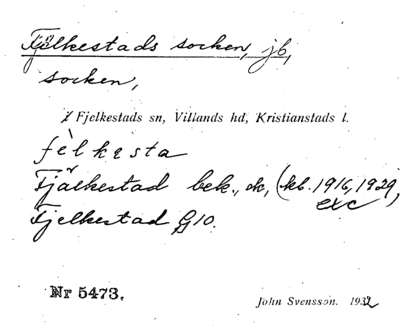 Fjälkestads socken, jb,
socken,
i Fjelkestads sn, Villands hd, Kristianstads l.
fèlkesta
Fjälkestad bek., dk, (kb. 1916, 1929,
exc
Fjelkestad G10.
Nr 5473.
John Svensson. 1932